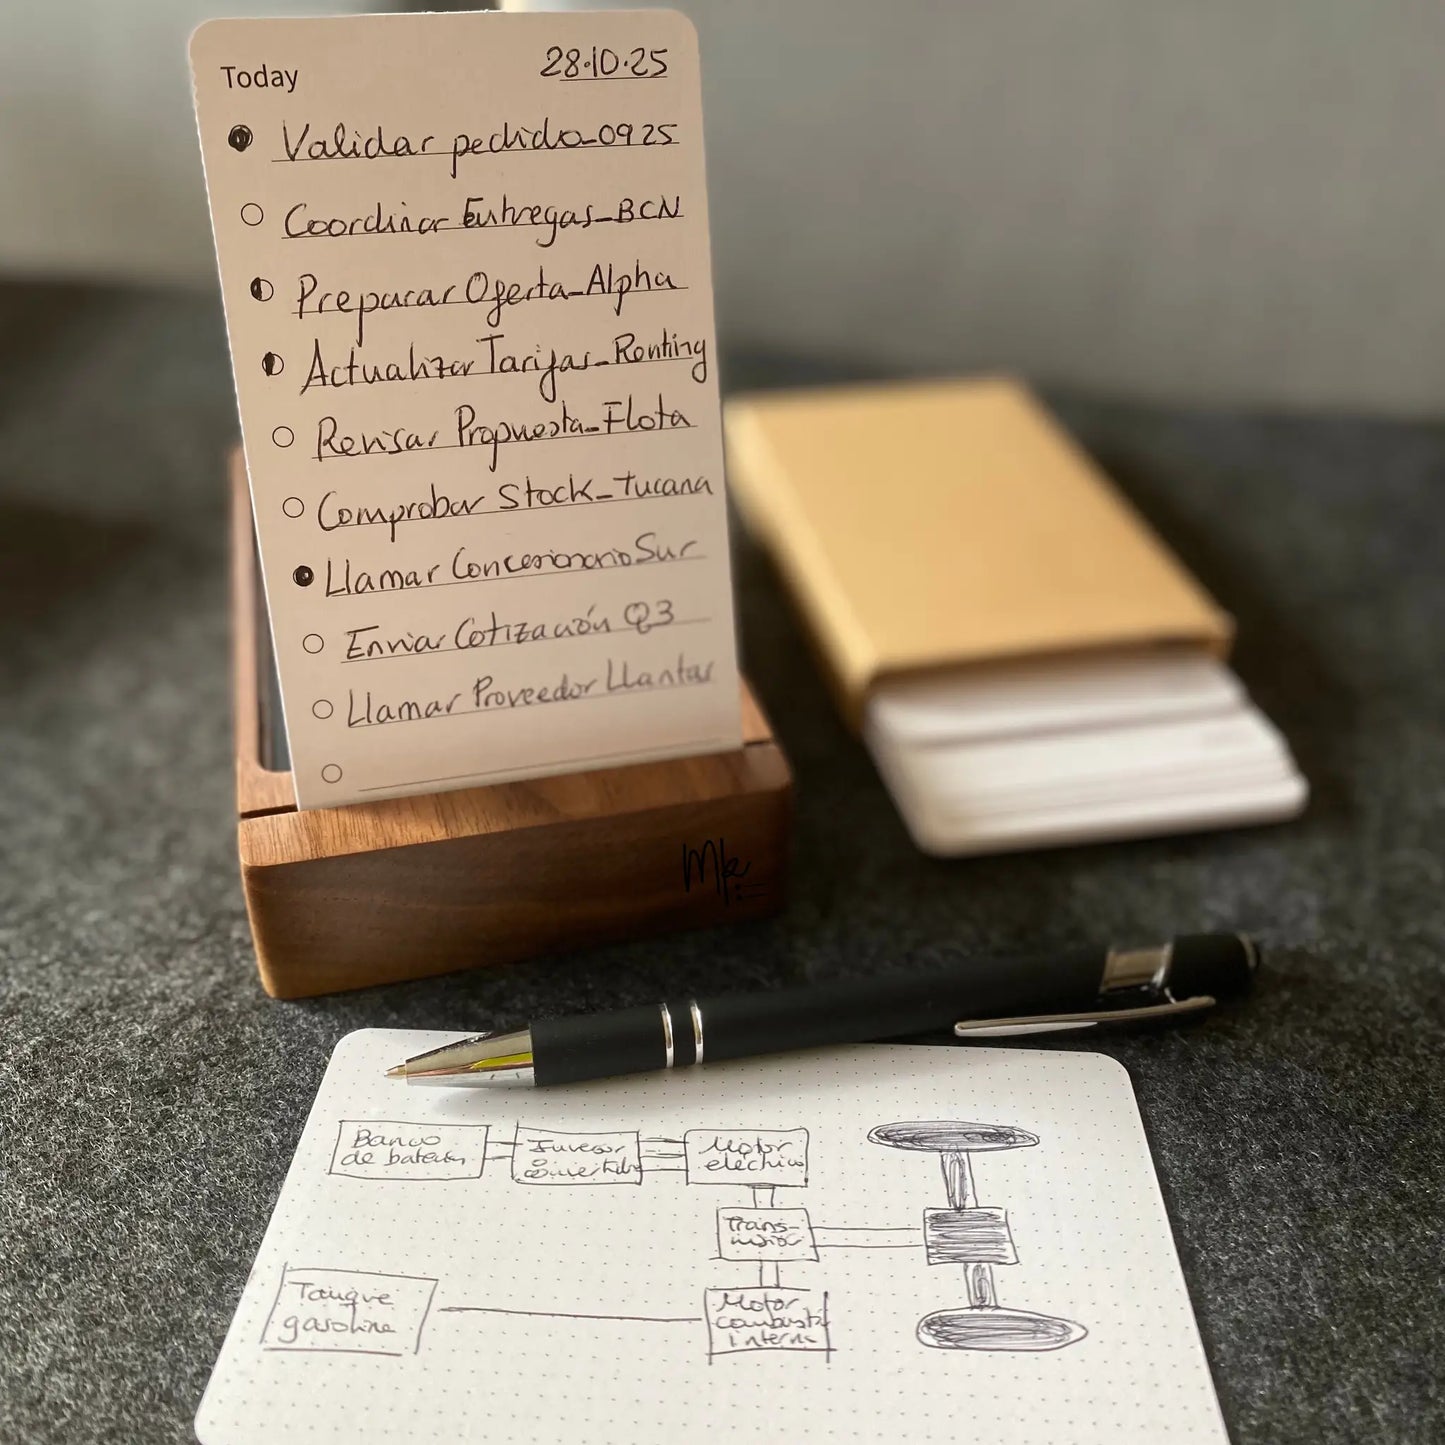 Today 28·10·25
Validar pedido_0925
Coordinar Entregas_BCN
Preparar Oferta_Alpha
Actualizar Tarifas_Renting
Revisar Propuesta_Flota
Comprobar Stock_Tucana
Llamar Concesionario Sur
Enviar Cotización Q3
Llamar Proveedor Llantas
Mk
Banco
de baterías
Inversor
o
convertidor
Motor
eléctrico
Trans-
misión
Tanque
gasolina
Motor
combustión
interna